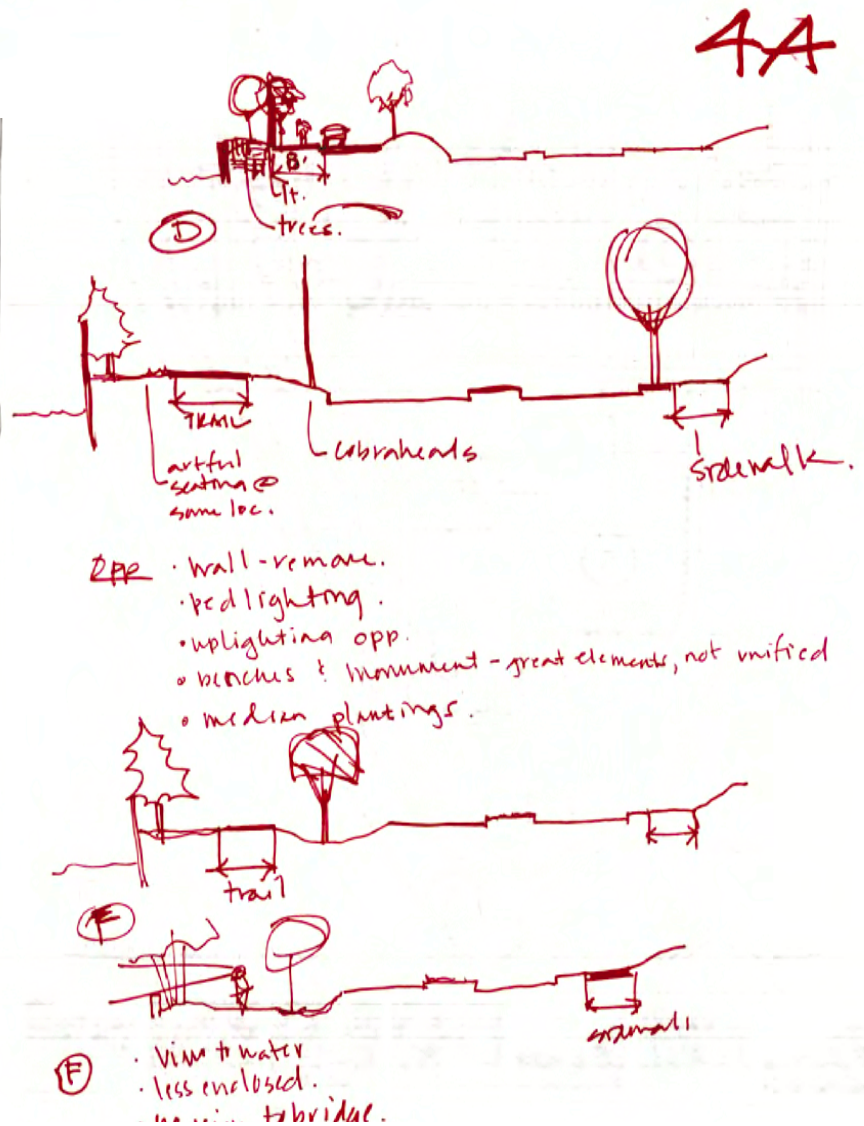 4A
8'
lt.
trees.
D
TRAIL
cobraheads
sidewalk.
artful
seating @
some loc.
Opp · wall-remove.
· ped lighting.
· uplighting opp.
• benches & monument - great elements, not unified
• median plantings.
trail
F
sidewalk
F
· view to water
· less enclosed.
view to bridge.